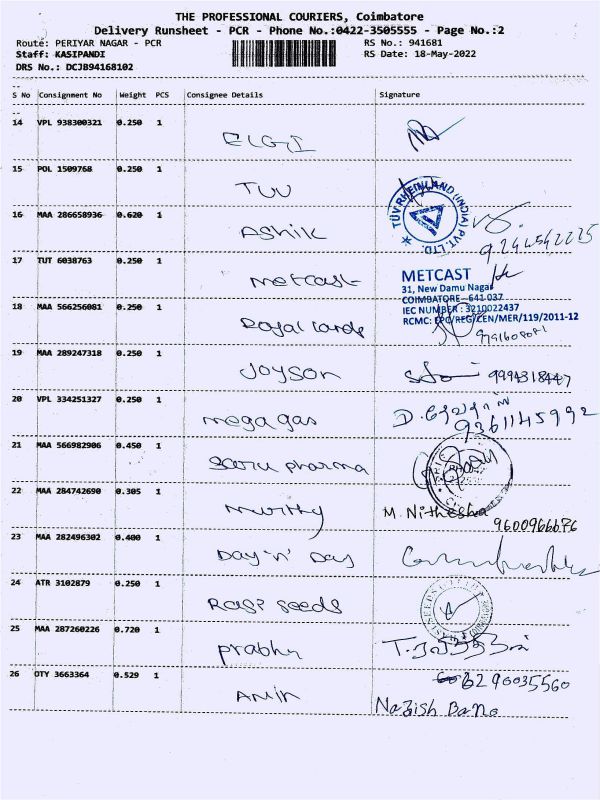 THE PROFESSIONAL COURIERS, Coimbatore
Delivery Runsheet - PCR - Phone No.:0422-3505555 - Page No.:2
Route: PERIYAR NAGAR - PCR RS No.: 941681
Staff: KASIPANDI RS Date: 18-May-2022
DRS No.: DCJB94168102
S No Consignment No Weight PCS Consignee Details Signature
14 VPL 938300321 0.250 1 ELGI
15 POL 1509768 0.250 1 TUV
TÜV RHEINLAND (INDIA) PVT. LTD.
16 MAA 286658936 0.620 1 Ashik 9244542225
17 TUT 6038763 0.250 1 Metcast
METCAST
31, New Damu Nagar
COIMBATORE - 641 037
IEC NUMBER : 3210022437
RCMC: EPC/REG/CEN/MER/119/2011-12
18 MAA 566256081 0.250 1 Royal cards
19 MAA 289247318 0.250 1 Joyson 9994318447
20 VPL 334251327 0.250 1 mega gas 9361145992
21 MAA 566982906 0.450 1 pharma
22 MAA 284742690 0.305 1 murthy M. Nithesha
9600966676
23 MAA 282496302 0.400 1 Day 'n' Day
24 ATR 3102879 0.250 1 Rasi seeds
25 MAA 287260226 0.720 1 prabhu
26 OTY 3663364 0.529 1 Amin 6290035560
Nazish Bano